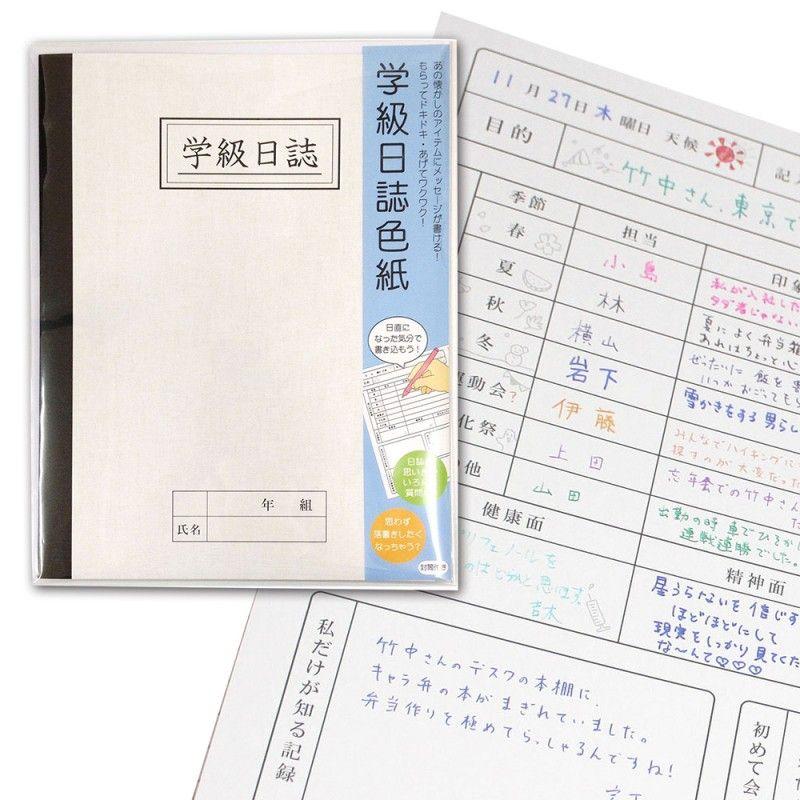 学級日誌
年 組
氏名
あの懐かしのアイテムにメッセージが書ける!
もらってドキドキ・あげてワクワク!
学級日誌色紙
日直に
なった気分で
書き込もう!
日誌
思い
いろ
質問
思わず
落書きしたく
なっちゃう?
封筒付き
11月27日木曜日 天候
目的
竹中さん、東京で
季節 担当
春 小島
私が入社した
夏 林
夏によく弁当箱
秋 横山
冬 岩下
雪かきをする男らし
運動会? 伊藤
みんなでハイキングに
化祭 上田
忘年会での竹中さん
の他 山田
出勤の時、車でひろか
連戦連勝でした。
健康面
リフェノールを
のはどうかと思います。
吉木
精神面
星うらないを信じす
ほどほどにして
現実をしっかり見てくだ
な〜んて♡♡♡
私だけが知る記録
竹中さんのデスクの本棚に、
キャラ弁の本がまぎれていました。
弁当作りを極めてらっしゃるんですね!
初めて会